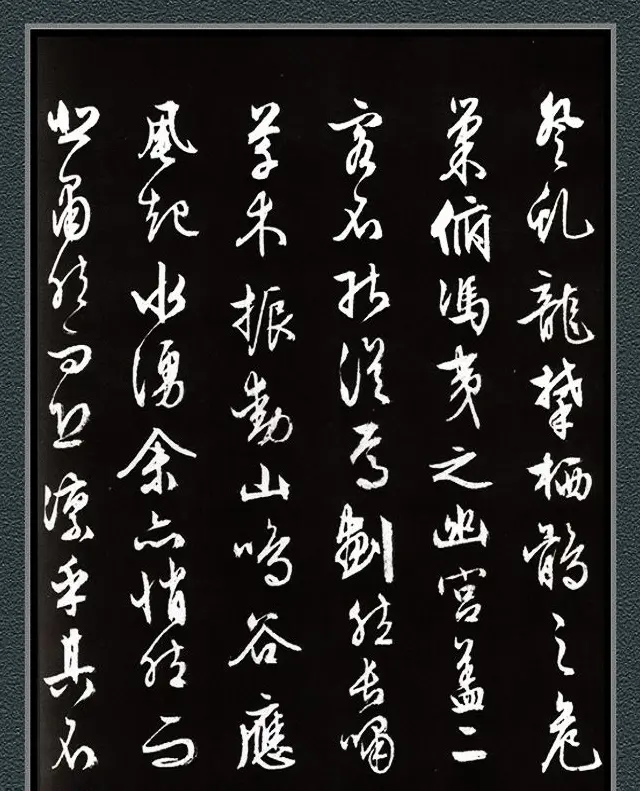 登虬龍攀栖鶻之危
巢俯馮夷之幽宮蓋二
客不能從焉劃然長嘯
草木振動山鳴谷應
風起水湧余亦悄然而
悲肅然而恐凛乎其不